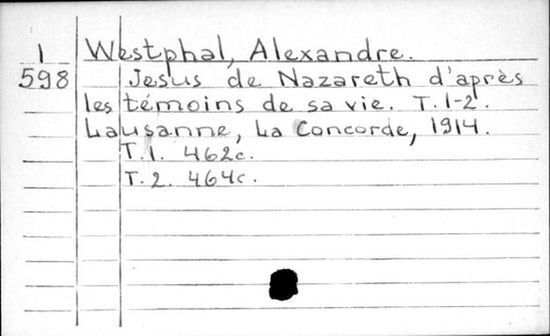 1 Westphal, Alexandre.
598 Jesus de Nazareth d'après
les témoins de sa vie. T. 1-2.
Lausanne, La Concorde, 1914.
T. 1. 462c.
T. 2. 464c.